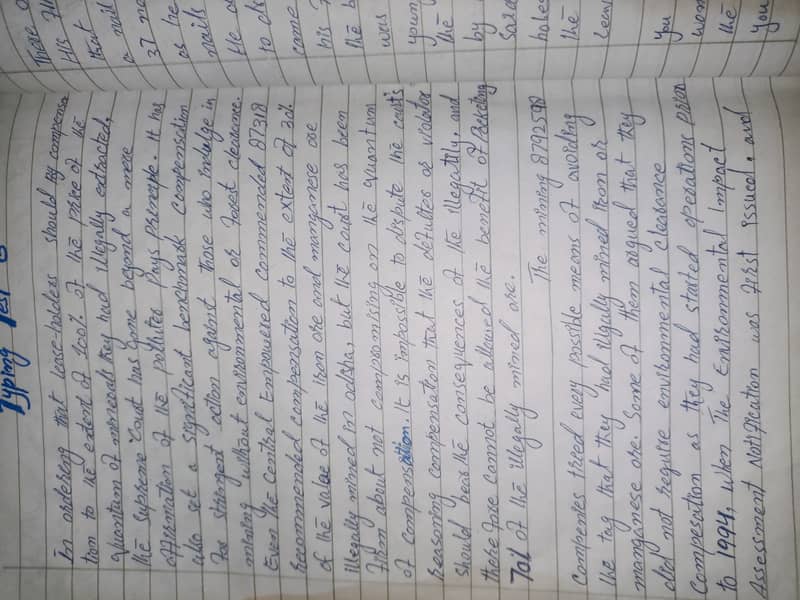 Typing Test
In ordering that lease-holders should pay compensa
tion to the extent of 100% of the price of the
quantum of minerals they had illegally extracted,
the Supreme Court has gone beyond a mere
affirmation of the polluter Pays Principe. It has
also set a significant benchmark compensation
for stringent action against those who indulge in
mining without environmental or forest clearance.
Even the Central Empowered commended 87318
Recommended compensation to the extent of 30%
of the value of the iron ore and manganese ore
illegally mined in odisha, but the court has been
firm about not compromising on the quantum
of compensation. It is impossible to dispute the court's
reasoning compensation that the defulter or violator
should bear the consequences of the illegatily, and
there fore cannot be allowed the benefit of Pocketing
70% of the illegally mined ore.
The mining 8792590
companies tried every possible means of avoiding
the tag that they had illegally mined iron or
manganese ore. Some of them argued that they
did not require environmental clearance
Compesation as they had started operations prior
to 1994, when the Environmental Impact
Assessment Notification was first issued. and
There
His
that
a nail
37
as he
nails
He
to
come
his
the
was
young
the
by
Said
holes
the
You
the
you